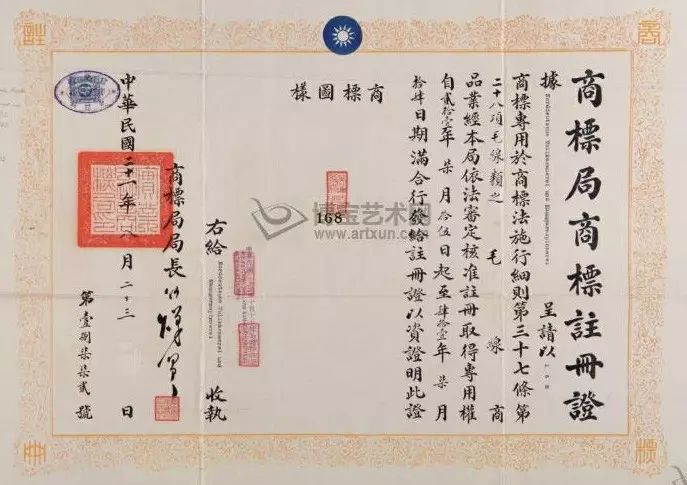 商標局商標註冊證
據 Norddeutsche Wollkämmerei und Kammgarnspinnerei 呈請以 168
商標專用於商標法施行細則第三十七條第
二十八項毛線類之 毛線 商
品業經本局依法審定核准註冊取得專用權
自貳拾壹年柒月拾伍日起至肆拾壹年柒月
拾肆日期滿合行發給註冊證以資證明此證
商標圖樣
168
博宝艺术网
www.artxun.com
右給 Norddeutsche Wollkämmerei und Kammgarnspinnerei 收執
商標局局長
中華民國二十一年八月二十三日
第壹捌柒柒貳號